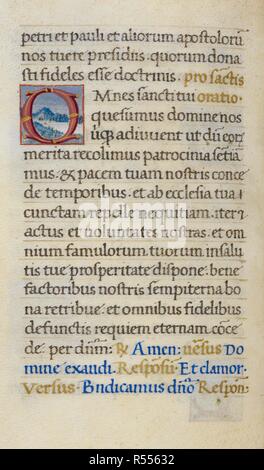 petri et pauli et aliorum apostolorū
nos tuere presidiis. quorum dona
sti fideles esse doctrinis. pro sāctis
OMNES sancti tui oratio.
quesumus domine nos
ubiq3 adiuvent ut dū eoꝝ
merita recolimus patrocinia sētia
mus. & pacem tuam nostris conce
de temporibus. et ab ecclesia tua
cunctam repelle nequitiam. iter
actus et voluntates nostras. et om
nium famulorum tuorum in salu
tis tue prosperitate dispone. bene
factoribus nostris sempiterna bo
na retribue. et omnibus fidelibus
defunctis requiem eternam cōce
de. per dnm̄. ℟ Amen: versus Do
mine exaudi. Responsū. Et clamor.
Versus. Bn̄dicamus dn̄o Respon̄.
alamy
Image ID: R55632
www.alamy.com